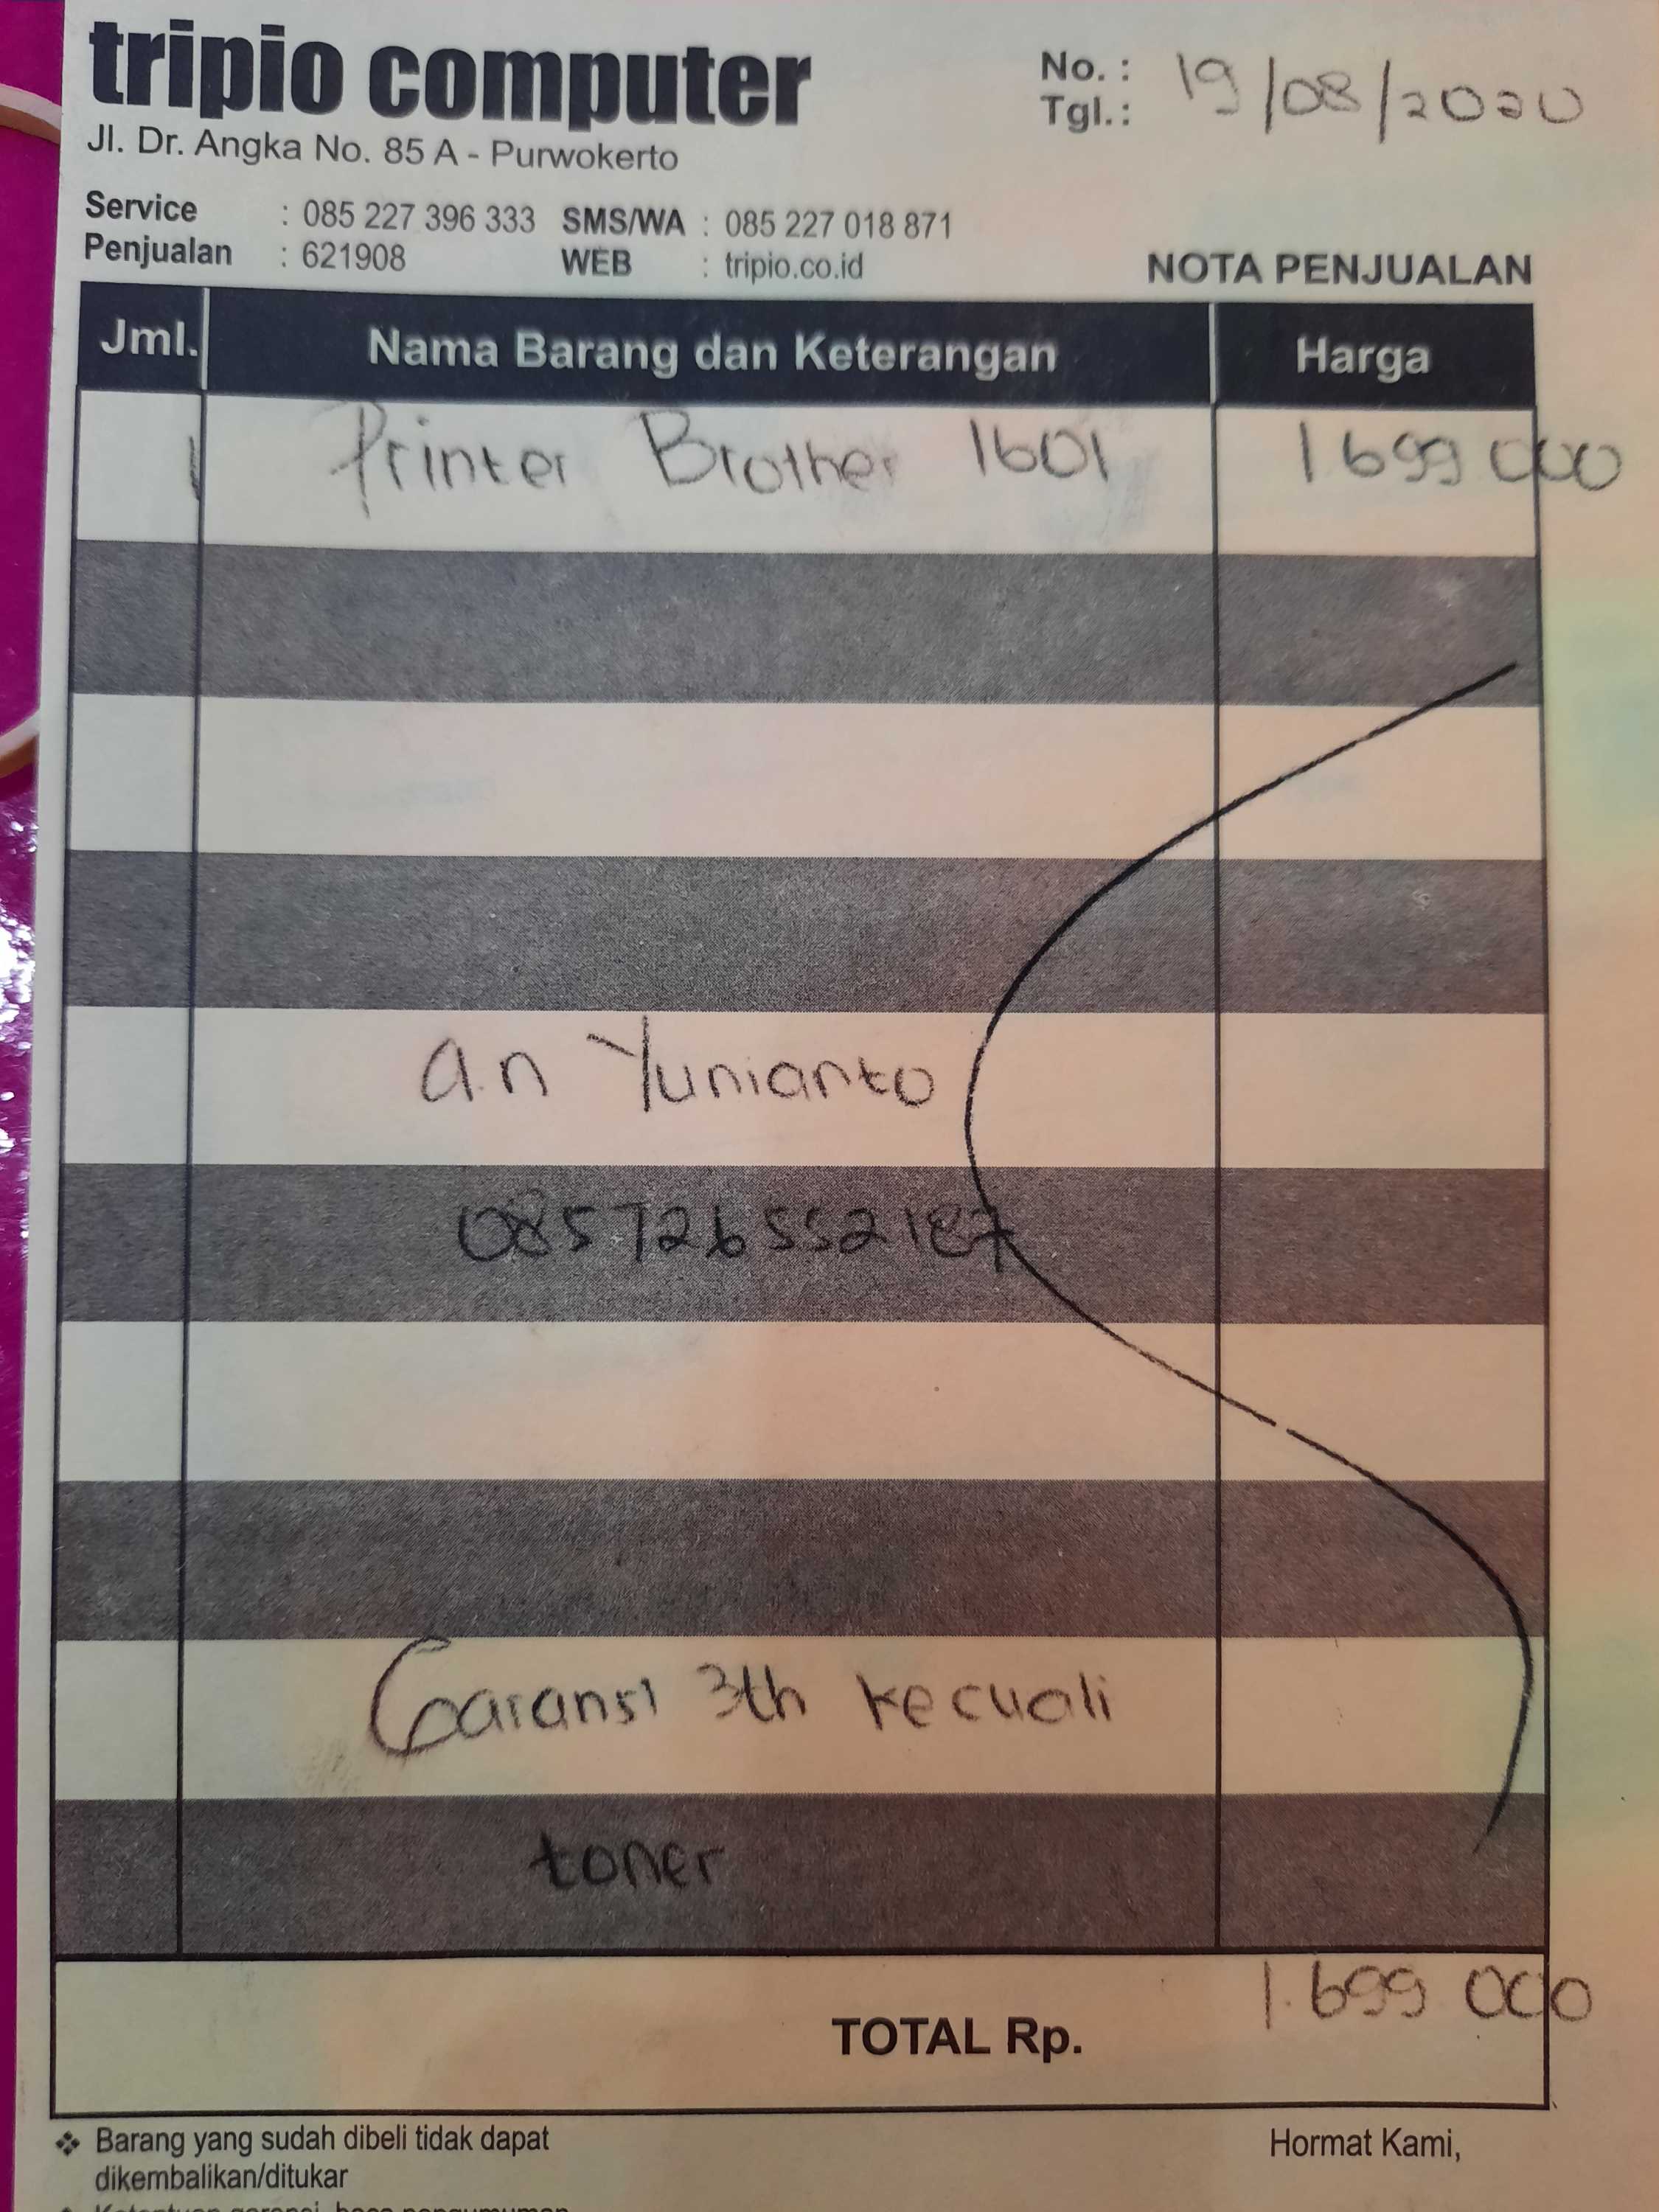 tripio computer
Jl. Dr. Angka No. 85 A - Purwokerto
No. :
Tgl. : 19/08/2020
Service : 085 227 396 333 SMS/WA : 085 227 018 871
Penjualan : 621908 WEB : tripio.co.id
NOTA PENJUALAN
Jml. Nama Barang dan Keterangan Harga
1 Printer Brother 1601 1 699 000
a.n Yunianto
085726552187
Garansi 3th kecuali
toner
TOTAL Rp. 1.699 000
❖ Barang yang sudah dibeli tidak dapat
dikembalikan/ditukar
Hormat Kami,
❖ Ketentuan garansi, baca pengumuman